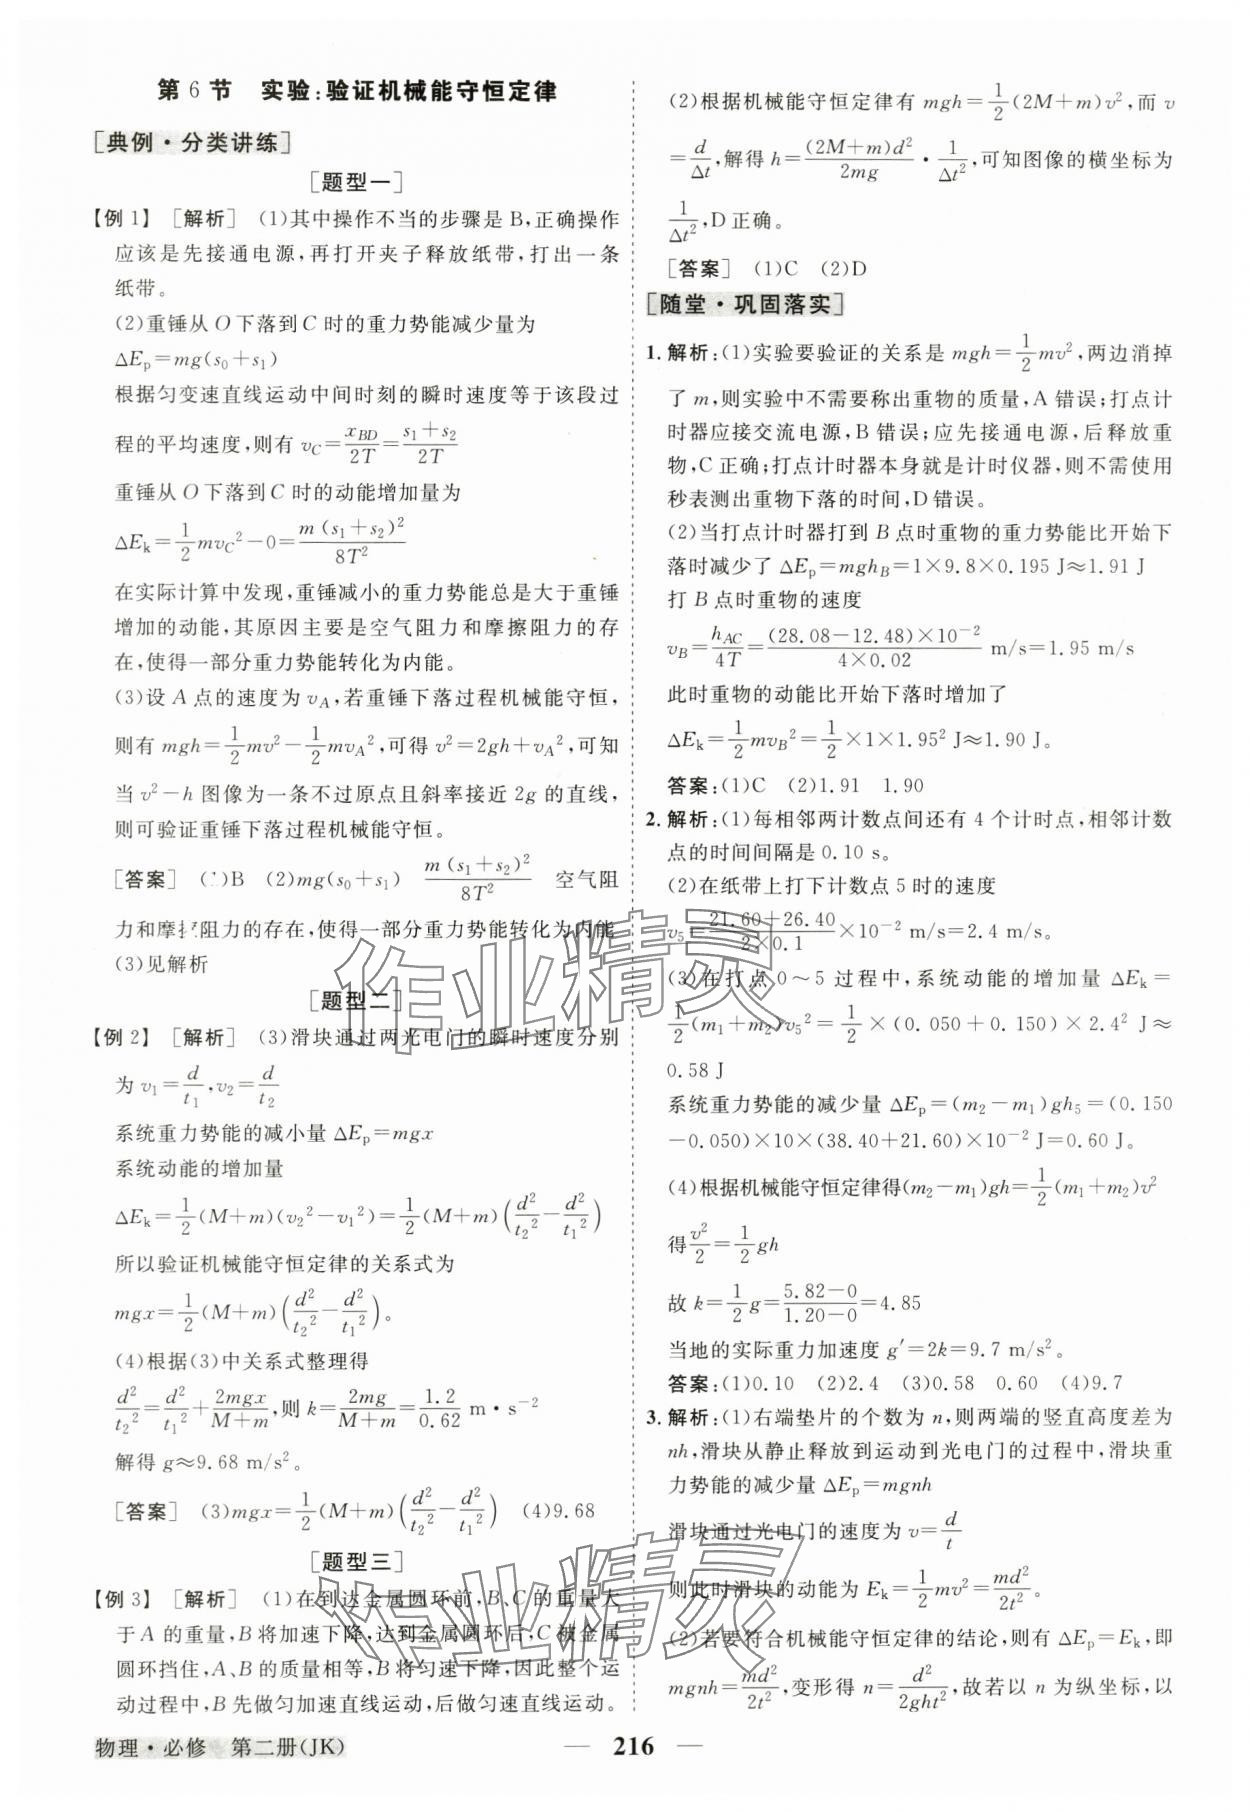 第6节 实验:验证机械能守恒定律
[典例·分类讲练]
[题型一]
【例1】 [解析] (1)其中操作不当的步骤是B,正确操作
应该是先接通电源,再打开夹子释放纸带,打出一条
纸带。
(2)重锤从O下落到C时的重力势能减少量为
ΔEp=mg(s₀+s₁)
根据匀变速直线运动中间时刻的瞬时速度等于该段过
程的平均速度,则有 vC=xBD/2T=(s₁+s₂)/2T
重锤从O下落到C时的动能增加量为
ΔEk=1/2 mvC²-0=m(s₁+s₂)²/8T²
在实际计算中发现,重锤减小的重力势能总是大于重锤
增加的动能,其原因主要是空气阻力和摩擦阻力的存
在,使得一部分重力势能转化为内能。
(3)设A点的速度为vA,若重锤下落过程机械能守恒,
则有 mgh=1/2 mv²-1/2 mvA²,可得 v²=2gh+vA²,可知
当 v²-h 图像为一条不过原点且斜率接近2g的直线,
则可验证重锤下落过程机械能守恒。
[答案] ( )B (2)mg(s₀+s₁) m(s₁+s₂)²/8T² 空气阻
力和摩擦阻力的存在,使得一部分重力势能转化为内能
(3)见解析
[题型二]
【例2】 [解析] (3)滑块通过两光电门的瞬时速度分别
为 v₁=d/t₁,v₂=d/t₂
系统重力势能的减小量 ΔEp=mgx
系统动能的增加量
ΔEk=1/2(M+m)(v₂²-v₁²)=1/2(M+m)(d²/t₂²-d²/t₁²)
所以验证机械能守恒定律的关系式为
mgx=1/2(M+m)(d²/t₂²-d²/t₁²)。
(4)根据(3)中关系式整理得
d²/t₂²=d²/t₁²+2mgx/(M+m),则 k=2mg/(M+m)=1.2/0.62 m·s⁻²
解得 g≈9.68 m/s²。
[答案] (3)mgx=1/2(M+m)(d²/t₂²-d²/t₁²) (4)9.68
[题型三]
【例3】 [解析] (1)在到达金属圆环前,B、C的重量大
于A的重量,B将加速下降,达到金属圆环后,C被金属
圆环挡住,A、B的质量相等,B将匀速下降,因此整个运
动过程中,B先做匀加速直线运动,后做匀速直线运动。
物理·必修 第二册(JK)
(2)根据机械能守恒定律有 mgh=1/2(2M+m)v²,而 v
=d/Δt,解得 h=(2M+m)d²/2mg·1/Δt²,可知图像的横坐标为
1/Δt²,D正确。
[答案] (1)C (2)D
[随堂·巩固落实]
1.解析:(1)实验要验证的关系是 mgh=1/2 mv²,两边消掉
了m,则实验中不需要称出重物的质量,A错误;打点计
时器应接交流电源,B错误;应先接通电源,后释放重
物,C正确;打点计时器本身就是计时仪器,则不需使用
秒表测出重物下落的时间,D错误。
(2)当打点计时器打到B点时重物的重力势能比开始下
落时减少了 ΔEp=mghB=1×9.8×0.195 J≈1.91 J
打B点时重物的速度
vB=hAC/4T=(28.08-12.48)×10⁻²/(4×0.02) m/s=1.95 m/s
此时重物的动能比开始下落时增加了
ΔEk=1/2 mvB²=1/2×1×1.95² J≈1.90 J。
答案:(1)C (2)1.91 1.90
2.解析:(1)每相邻两计数点间还有4个计时点,相邻计数
点的时间间隔是0.10 s。
(2)在纸带上打下计数点5时的速度
v₅=(21.60+26.40)/(2×0.1)×10⁻² m/s=2.4 m/s。
(3)在打点0～5过程中,系统动能的增加量 ΔEk=
1/2(m₁+m₂)v₅²=1/2×(0.050+0.150)×2.4² J≈
0.58 J
系统重力势能的减少量 ΔEp=(m₂-m₁)gh₅=(0.150
-0.050)×10×(38.40+21.60)×10⁻² J=0.60 J。
(4)根据机械能守恒定律得(m₂-m₁)gh=1/2(m₁+m₂)v²
得v²/2=1/2 gh
故 k=1/2 g=(5.82-0)/(1.20-0)=4.85
当地的实际重力加速度 g′=2k=9.7 m/s²。
答案:(1)0.10 (2)2.4 (3)0.58 0.60 (4)9.7
3.解析:(1)右端垫片的个数为n,则两端的竖直高度差为
nh,滑块从静止释放到运动到光电门的过程中,滑块重
力势能的减少量 ΔEp=mgnh
滑块通过光电门的速度为 v=d/t
则此时滑块的动能为 Ek=1/2 mv²=md²/2t²。
(2)若要符合机械能守恒定律的结论,则有 ΔEp=Ek,即
mgnh=md²/2t²,变形得 n=d²/2ght²,故若以n为纵坐标,以
— 216 —
作业精灵
作业精灵